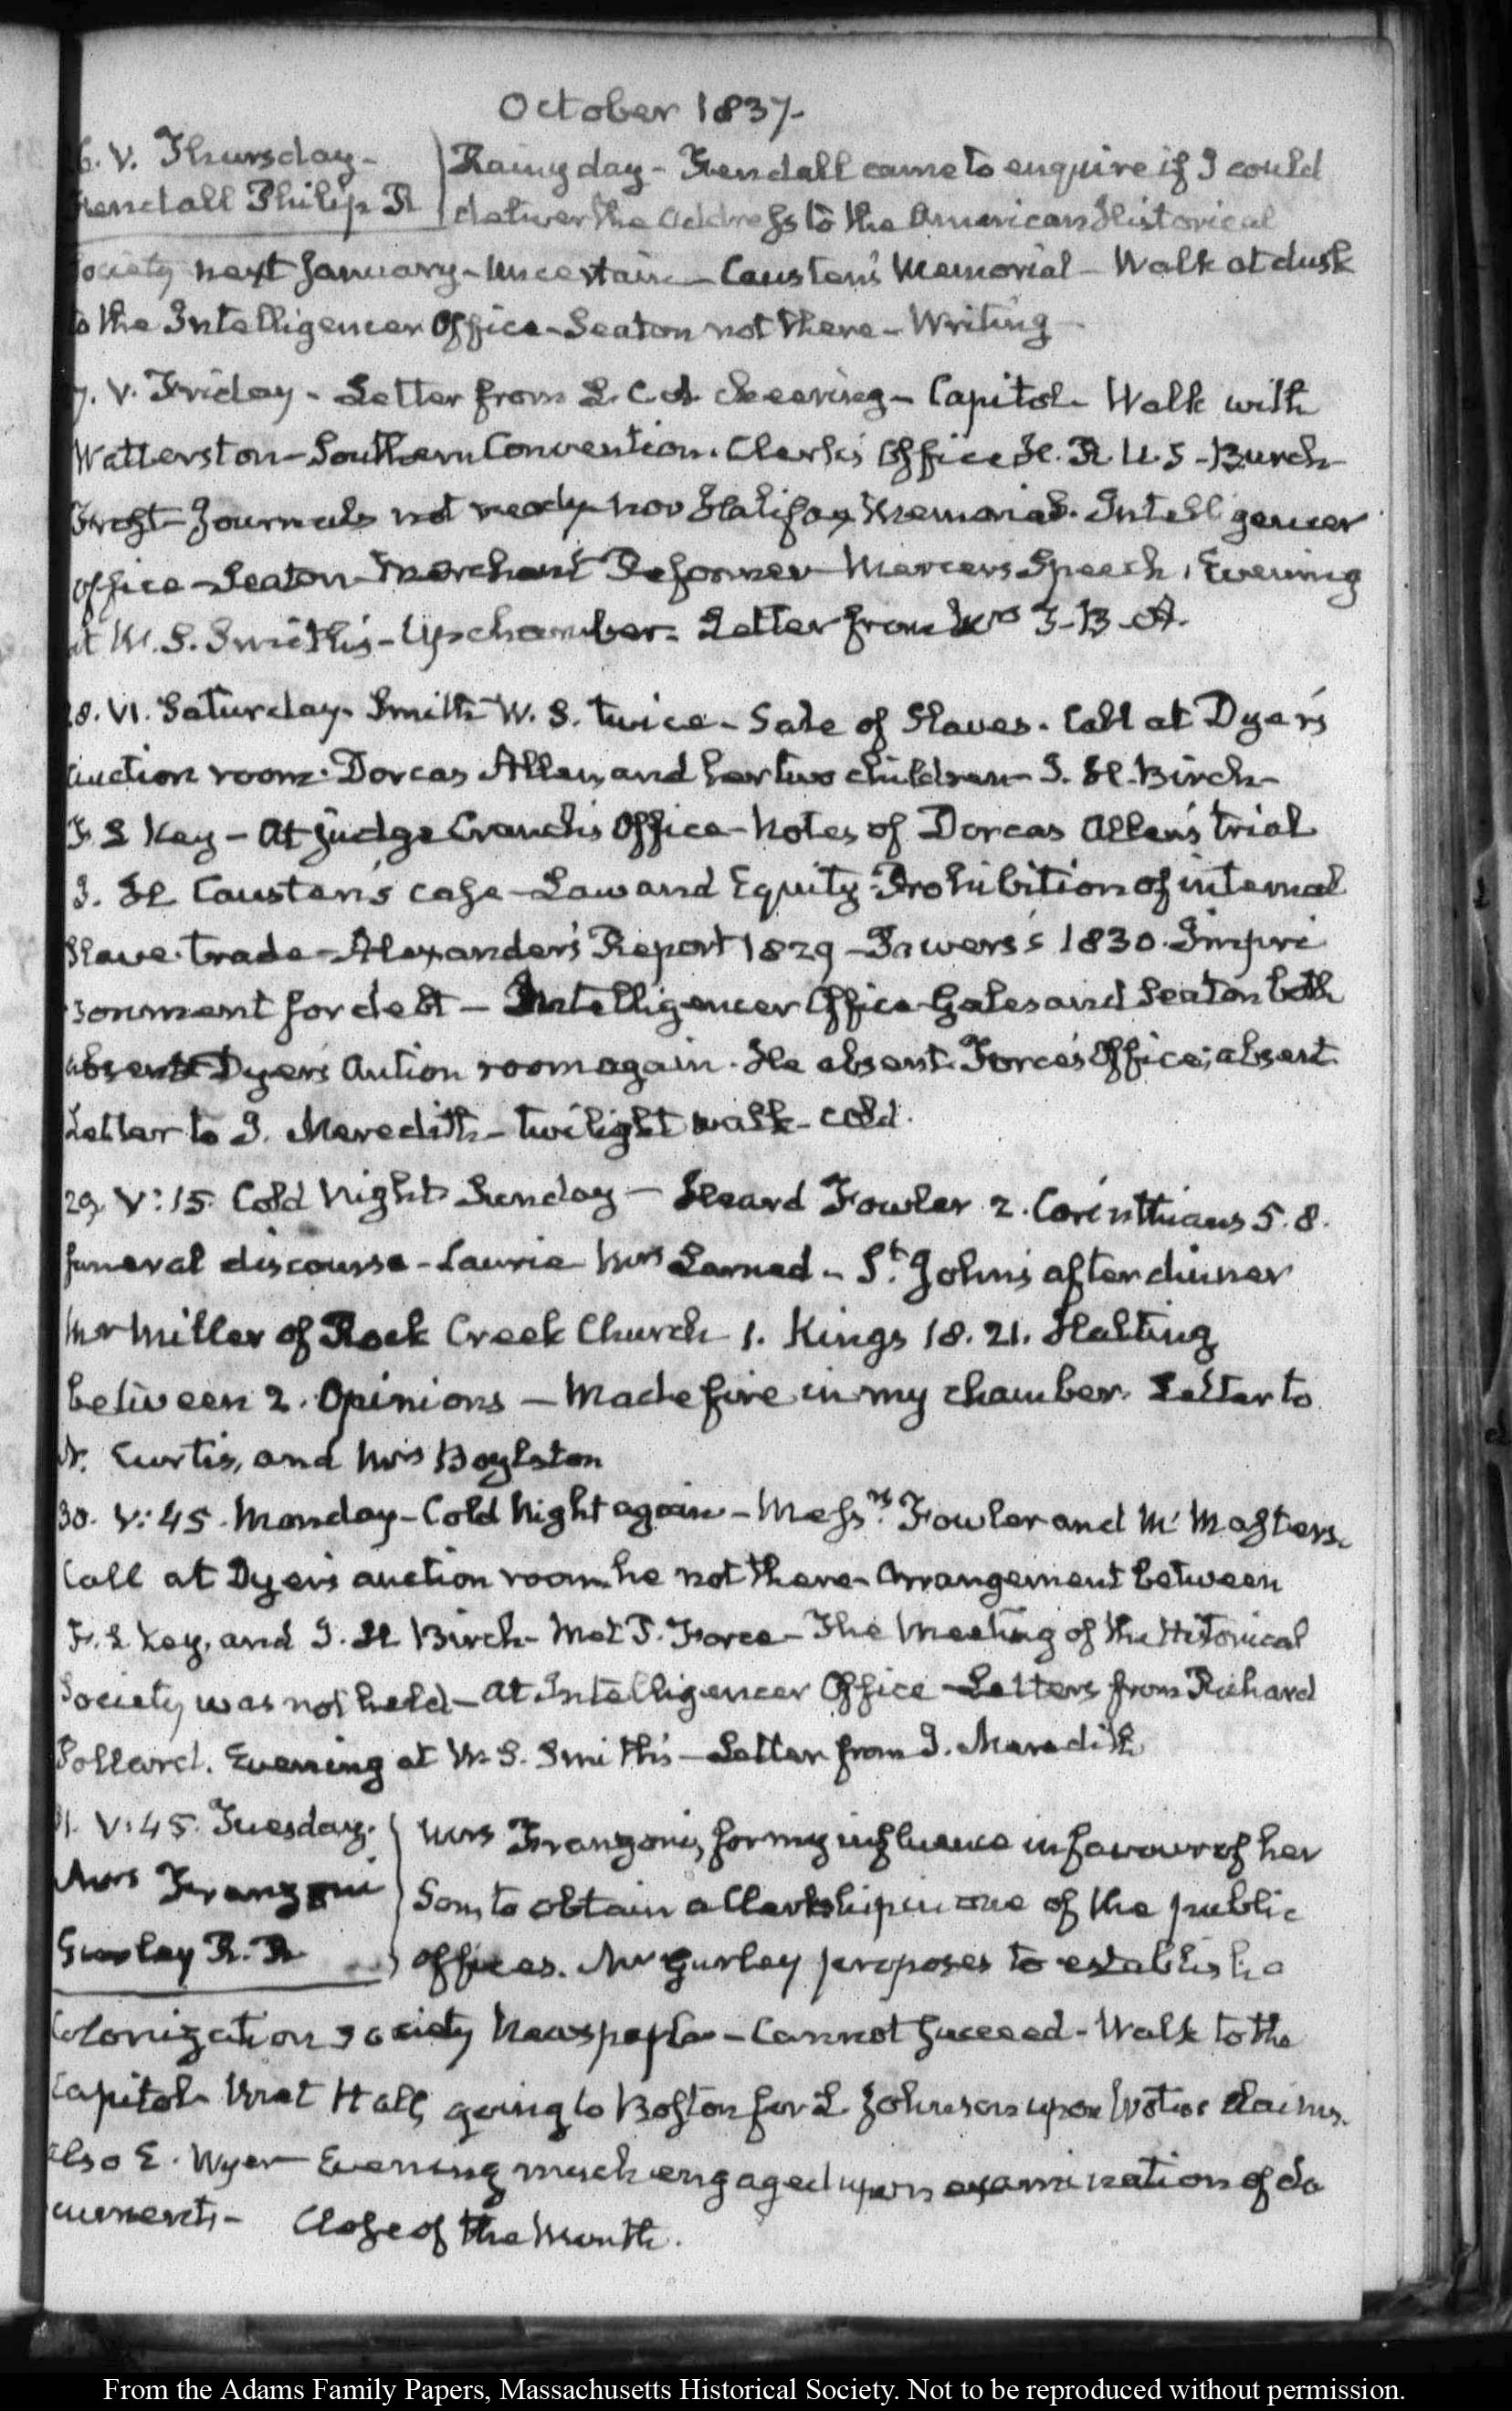 October 1837.
6. V. Thursday-
Fendall Philip R
Rainy day - Fendall came to enquire if I could
deliver the Address to the American Historical
Society next January - Uncertain - Causten's Memorial - Walk at dusk
to the Intelligencer Office - Seaton not there - Writing -
7. V. Friday - Letter from L. C. A. cheering - Capitol - Walk with
Watterston - Southern Convention. Clerk's Office H. R. U. S - Burch
Frost - Journals not ready nor Halifax Memorial. Intelligencer
Office - Seaton - Merchant Reformer - Mercer's Speech. Evening
at W. S. Smith's - Up chamber. Letter from Mrs T-B-A.
28. VI. Saturday. Smith W. S. twice - Sale of Slaves. Call at Dyer's
Auction room. Dorcas Allen, and her two children - J. H. Birch -
F. S Key - At Judge Cranch's Office - Notes of Dorcas Allen's trial
J. H Causten's case - Law and Equity. Prohibition of internal
Slave trade - Alexander's Report 1829 - Powers's 1830. Impri
sonment for debt - Intelligencer Office Gales and Seaton both
absent Dyer's Aution room again. He absent. Force's Office; absent
Letter to J. Meredith - twilight walk - cold.
29. V:15. Cold Night Sunday - Heard Fowler 2. Corinthians 5. 8.
funeral discourse - Laurie Mrs Larned - St. John's after dinner
Mr Miller of Rock Creek Church 1. Kings 18. 21. Halting
between 2. Opinions - Made fire in my chamber. Letter to
N. Curtis, and Mrs Boylston
30. V:45. Monday - Cold Night again - Messrs. Fowler and Mc Masters.
Call at Dyer's auction room he not there - Arrangement between
F. S. Key, and J. H Birch - Met P. Force - The Meeting of the Historical
Society was not held - At Intelligencer Office - Letters from Richard
Pollard. Evening at W. S. Smith's - Letter from J. Meredith
31. V:45. Tuesday.
Mrs Franzoni
Gurley R. R
Mrs Franzoni, for my influence in favour of her
Son, to obtain a Clerkship in one of the public
offices. Mr Gurley proposes to establish a
Colonization Society Newspaper - Cannot succeed - Walk to the
Capitol - Met Hall, going to Boston for L Johnson upon claims.
also E. Wyer - Evening much engaged upon examination of do
cuments - Close of the Month.
From the Adams Family Papers, Massachusetts Historical Society. Not to be reproduced without permission.